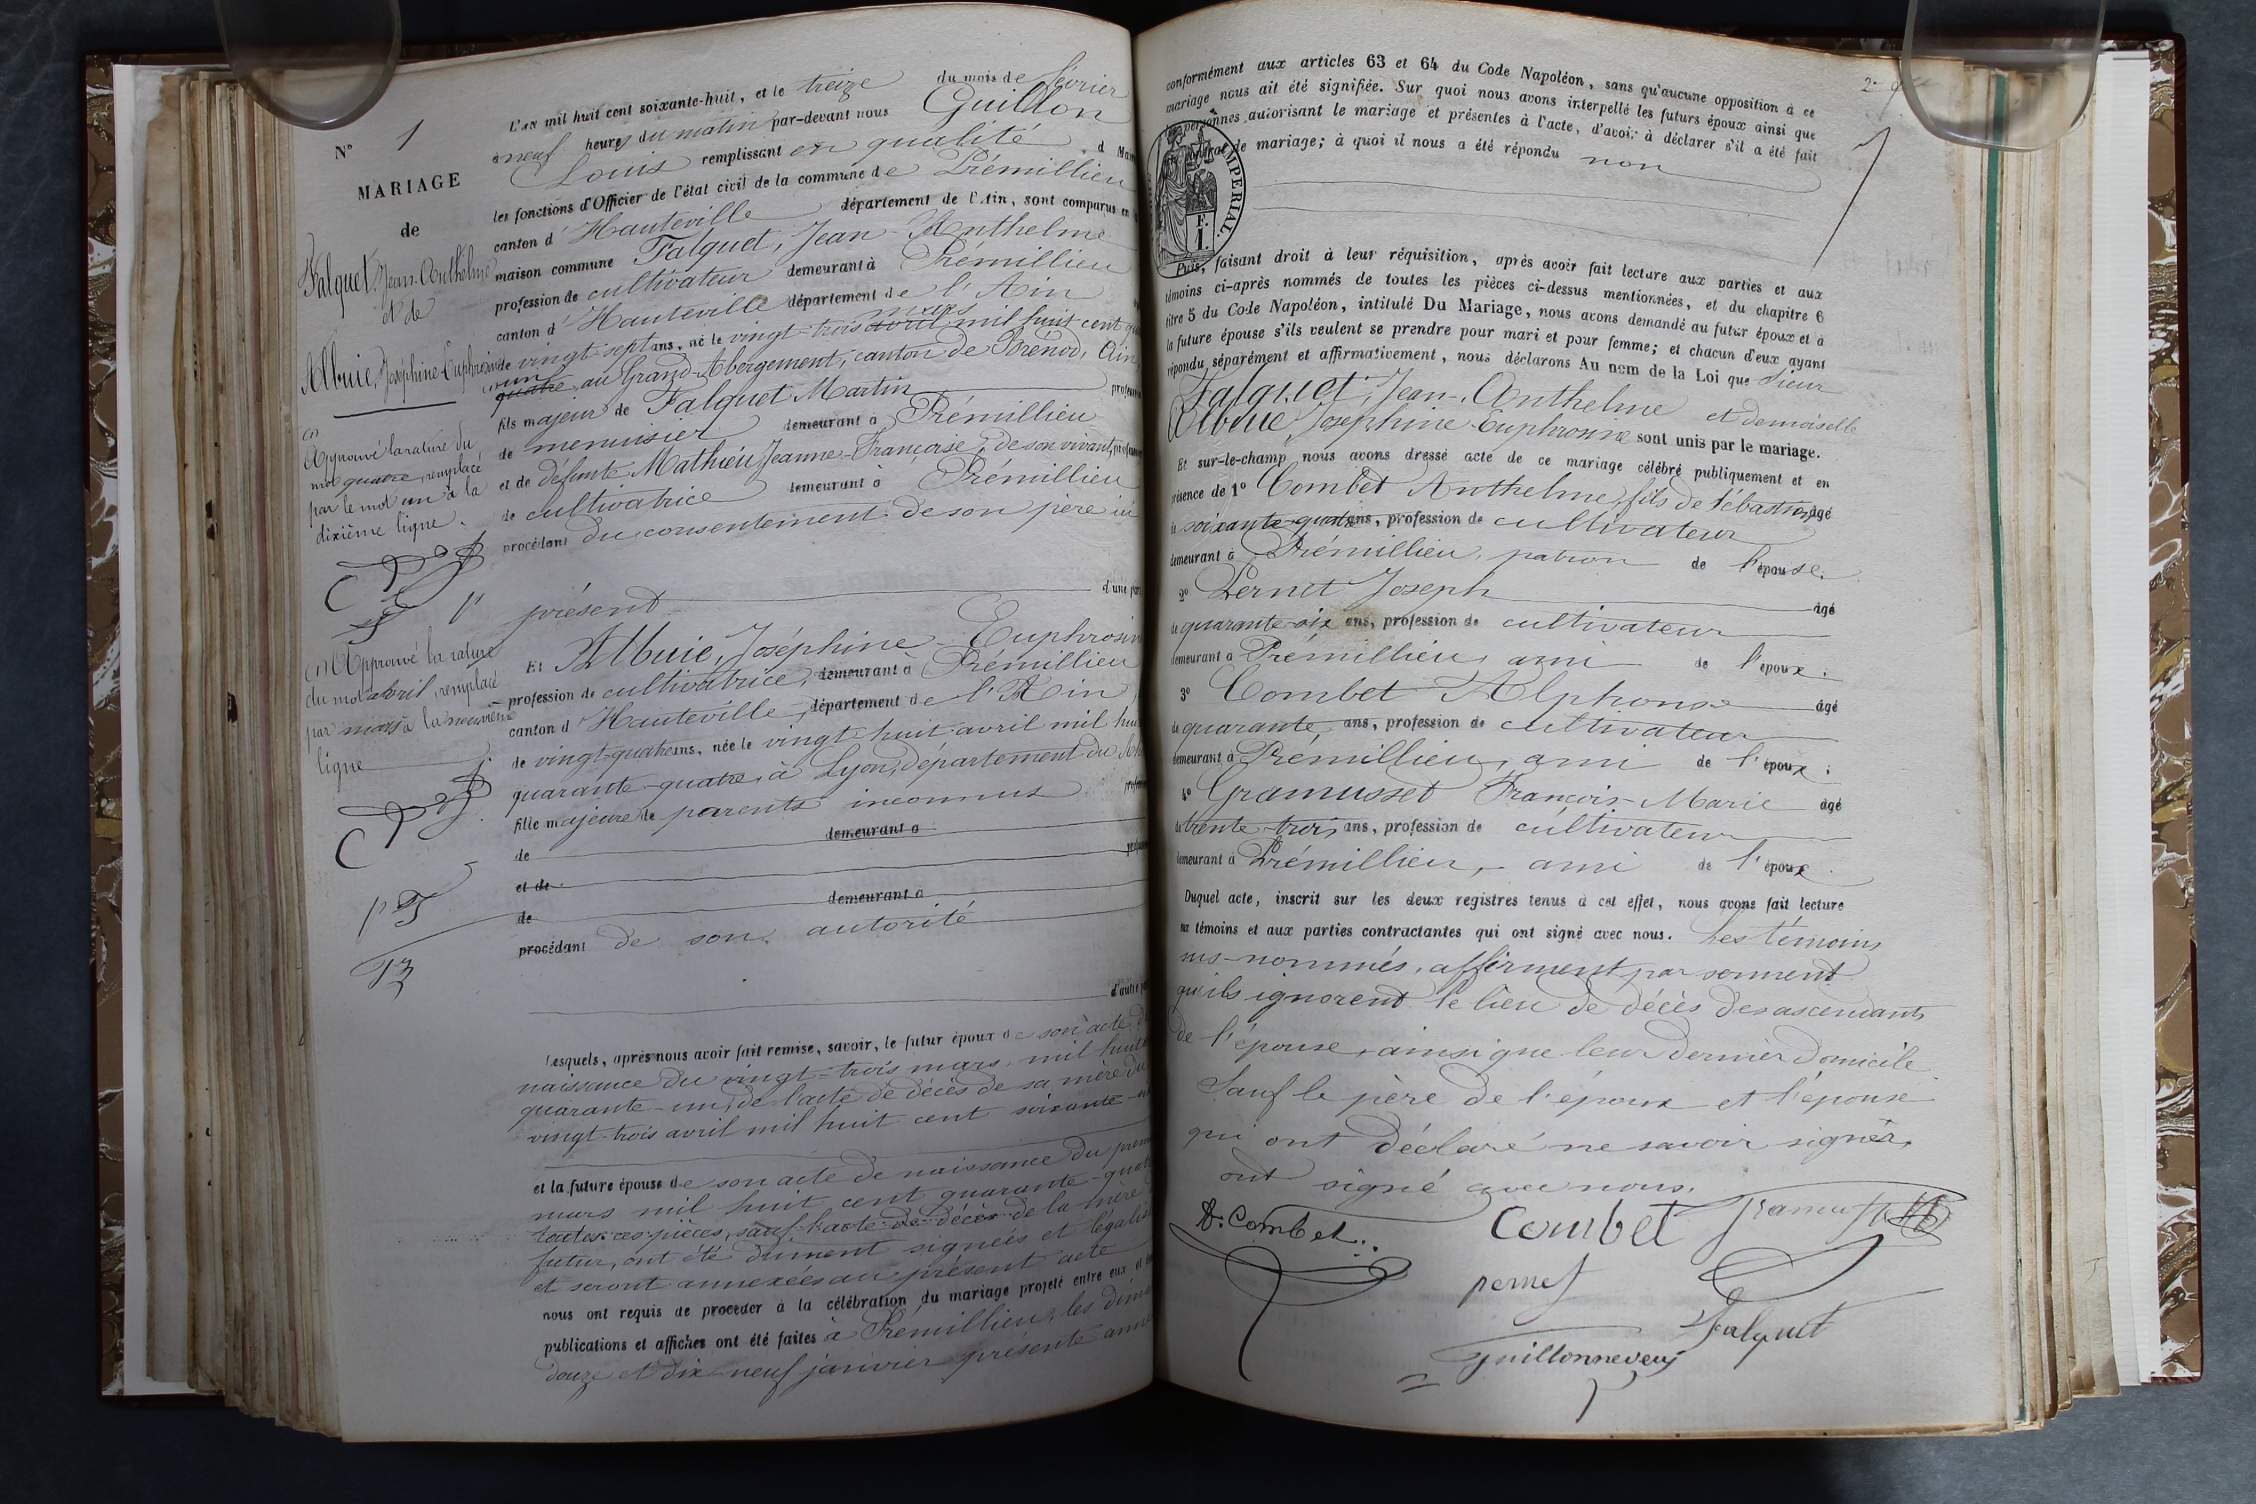 N° 1
MARIAGE
de
Falquet, Jean-Anthelme
et de
Albuie, Joséphine-Euphrosine
(1)
Approuvé la rature du
mot quatre, remplacé
par le mot un à la
dixième ligne.
(1) Approuvé la rature
du mot avril, remplacé
par mars à la neuvième
ligne
L'an mil huit cent soixante-huit, et le treize du mois de février
à neuf heures du matin par-devant nous Guillon
Louis remplissant en qualité d
les fonctions d'Officier de l'état civil de la commune de Prémillieu
canton d'Hauteville département de l'Ain, sont comparus en
maison commune Falquet, Jean-Anthelme
profession de cultivateur demeurant à Prémillieu
canton d'Hauteville département de l'Ain
mars
de vingt-sept ans, né le vingt-trois avril mil huit cent
un
quatre au Grand-Abergement, canton de Brénod, Ain,
fils majeur de Falquet Martin
de menuisier demeurant à Prémillieu
et de défunte Mathieu Jeanne-Françoise, de son vivant,
de cultivatrice demeurant à Prémillieu
procédant du consentement de son père ici
présent d'une part
Et Albuie, Joséphine-Euphrosin
profession de cultivatrice, demeurant à Prémillieu
canton d'Hauteville, département de l'Ain,
de vingt-quatre ans, née le vingt-huit avril mil hui
quarante-quatre, à Lyon, département du
fille majeure de parents inconnus
de demeurant à
et de
de demeurant à
procédant de son autorité
d'autre
Lesquels, après nous avoir fait remise, savoir, le futur époux de son acte d
naissance du vingt-trois mars mil huit
quarante-un, de l'acte de décès de sa mère du
vingt-trois avril mil huit cent soixante
et la future épouse de son acte de naissance du
mars mil huit cent quarante-quat
toutes ces pièces, sauf l'acte de décès de la mère
futur, ont été dument signées et légalis
et seront annexées au présent acte
nous ont requis de procéder à la célébration du mariage projeté entre eux
publications et affiches ont été faites à Prémillieu, les
douze et dix-neuf janvier présente
conformément aux articles 63 et 64 du Code Napoléon, sans qu'aucune opposition à ce
mariage nous ait été signifiée. Sur quoi nous avons interpellé les futurs époux ainsi que
les personnes autorisant le mariage et présentes à l'acte, d'avoir à déclarer s'il a été fait
contrat de mariage; à quoi il nous a été répondu non
IMPERIAL.
F.
1.
Puis, faisant droit à leur réquisition, après avoir fait lecture aux parties et aux
témoins ci-après nommés de toutes les pièces ci-dessus mentionnées, et du chapitre 6
titre 5 du Code Napoléon, intitulé Du Mariage, nous avons demandé au futur époux et à
la future épouse s'ils veulent se prendre pour mari et pour femme; et chacun d'eux ayant
répondu séparément et affirmativement, nous déclarons Au nom de la Loi que sieur
Falquet, Jean-Anthelme et demoiselle
Albuie Joséphine-Euphrosine sont unis par le mariage.
Et sur-le-champ nous avons dressé acte de ce mariage célébré publiquement et en
présence de 1° Combet Anthelme, fils de Sébastien, âgé
de soixante-quatre ans, profession de cultivateur
demeurant à Prémillieu, patron de l'épouse.
2° Pernet Joseph âgé
de quarante-six ans, profession de cultivateur
demeurant à Prémillieu, ami de l'époux.
3° Combet Alphonse âgé
de quarante ans, profession de cultivateur
demeurant à Prémillieu, ami de l'époux.
4° Gramusset François-Marie âgé
de trente-trois ans, profession de cultivateur
demeurant à Prémillieu, ami de l'époux.
Duquel acte, inscrit sur les deux registres tenus à cet effet, nous avons fait lecture
aux témoins et aux parties contractantes qui ont signé avec nous. Les témoins
sus-nommés, affirment par serment
qu'ils ignorent le lieu de décès des ascendants
de l'épouse, ainsi que leur dernier domicile
Sauf le père de l'époux et l'épouse
qui ont déclaré ne savoir signer,
ont signé avec nous.
A. Combet
Combet
Gramusset
pernet
Falquet
Guillonneveu